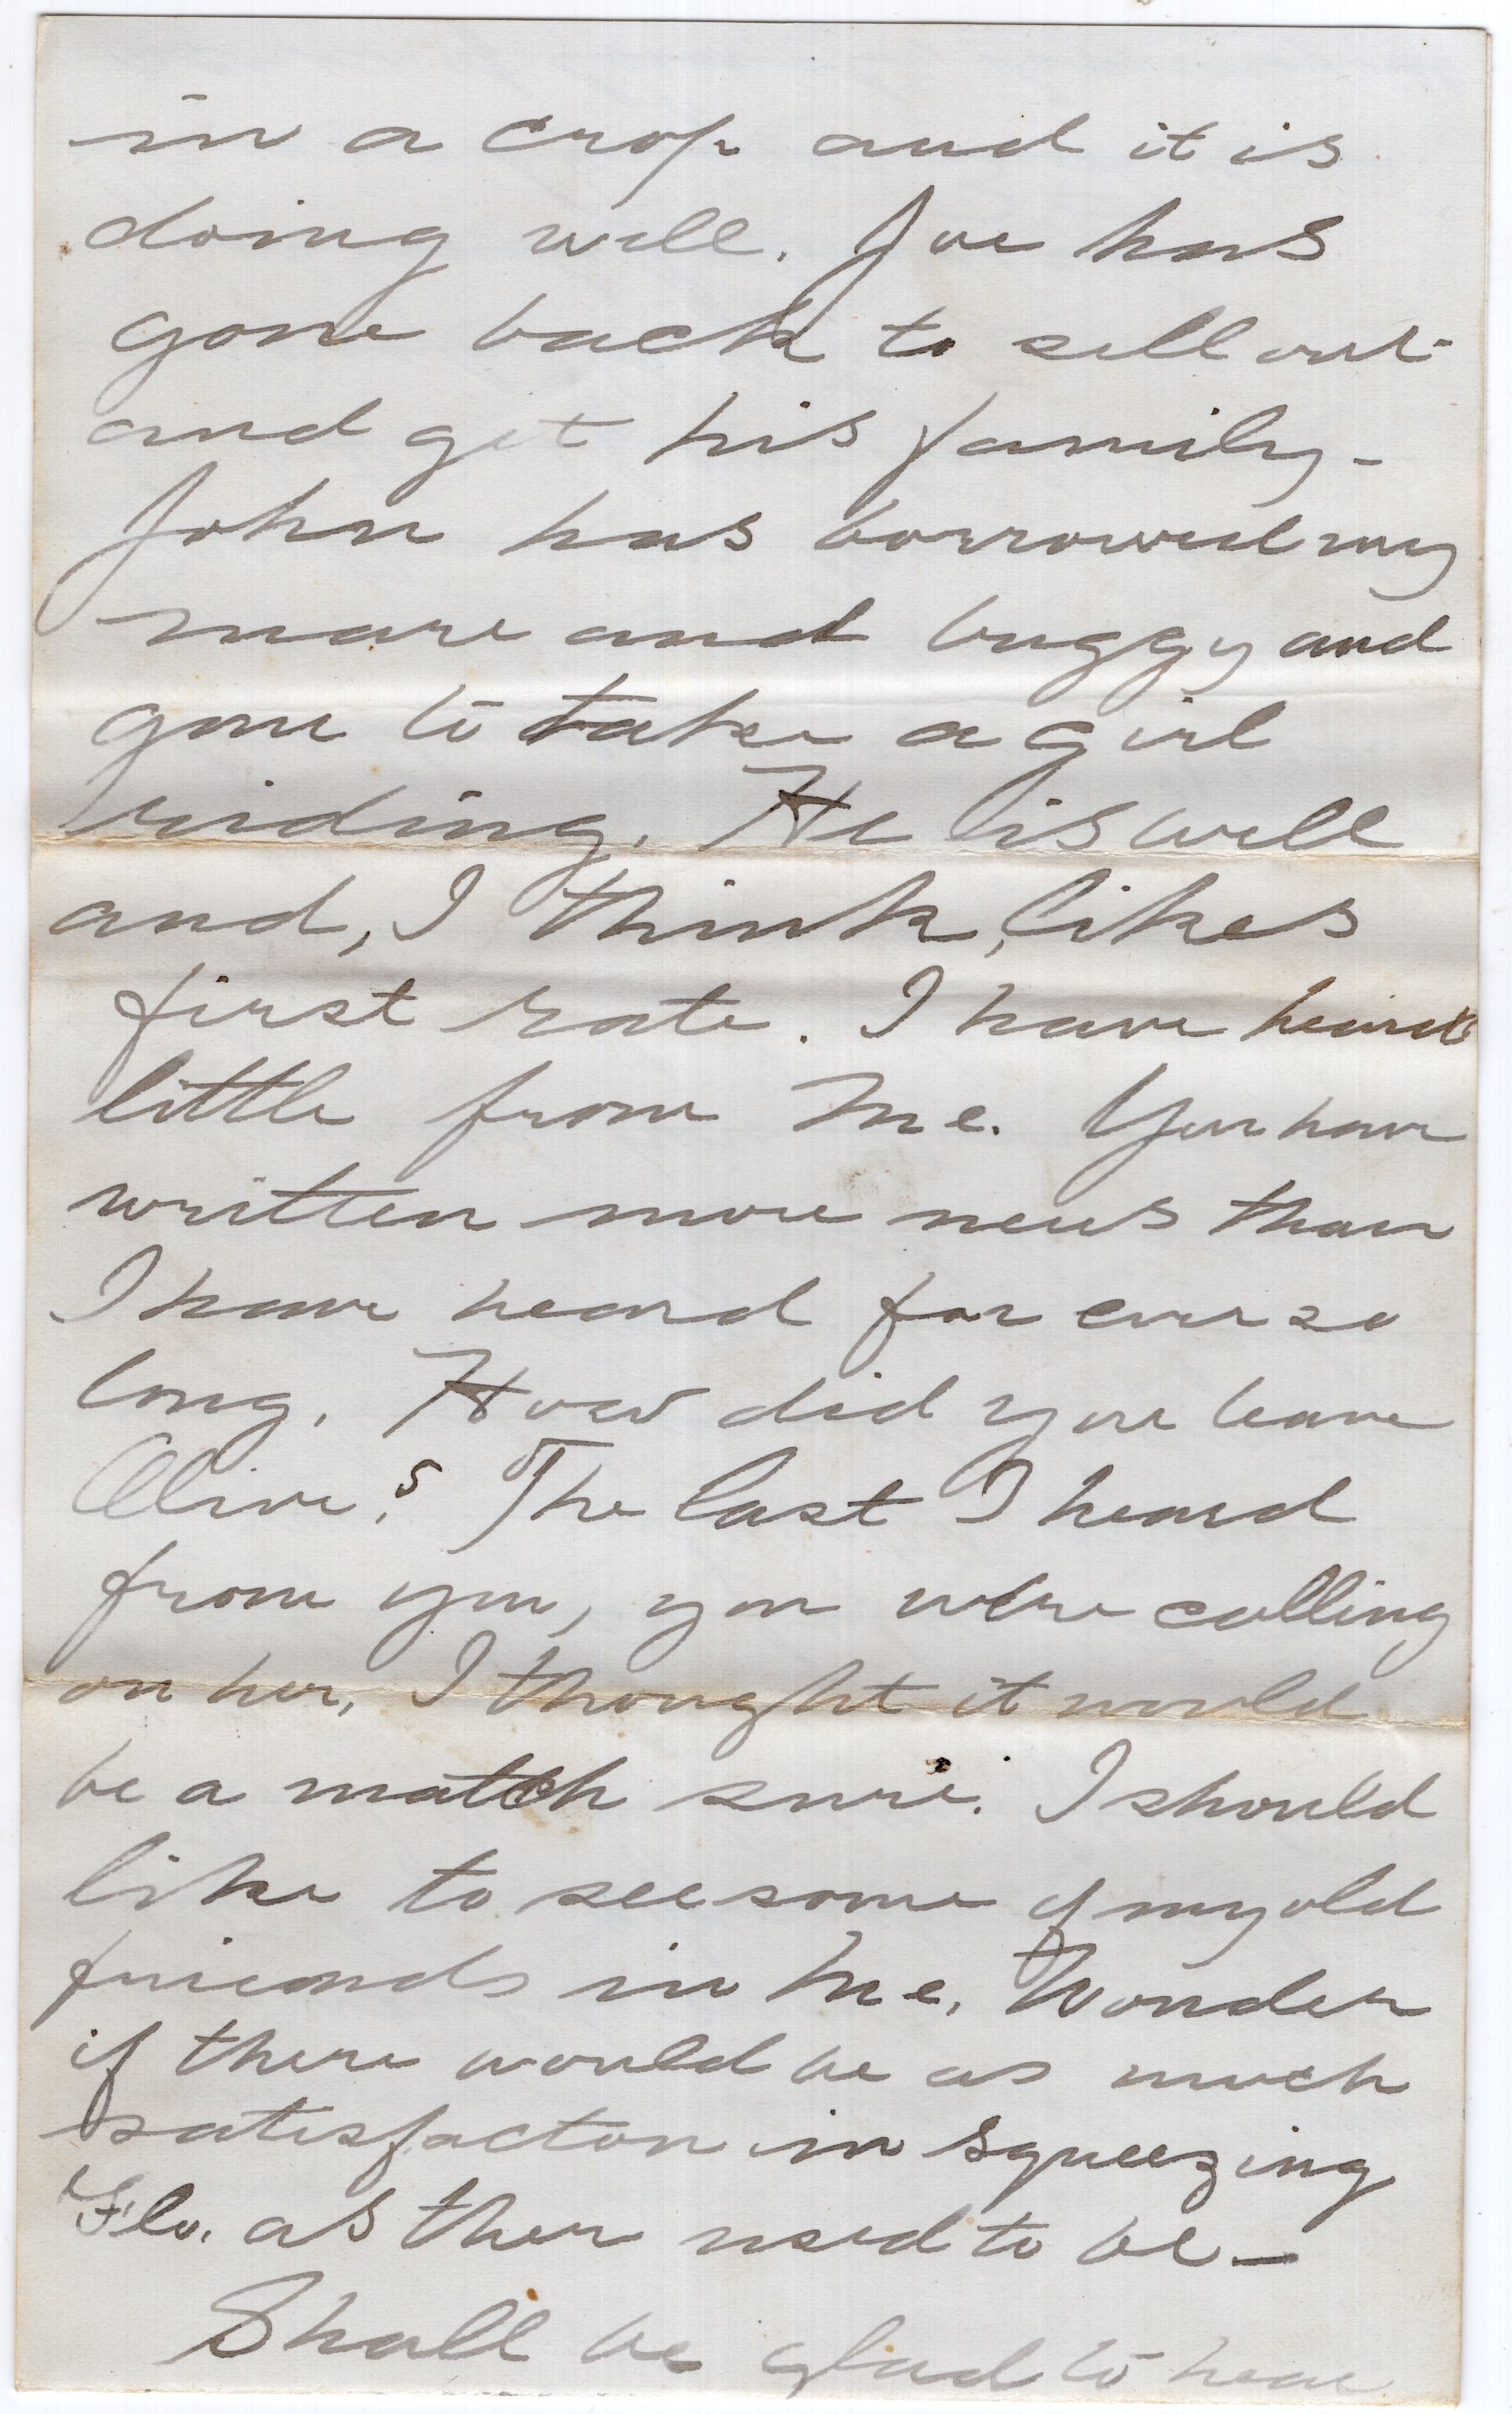 in a crop and it is
doing well. Joe has
gone back to sell out
and get his family -
John has borrowed my
mare and buggy and
gone to take a girl
riding. He is well
and, I think, likes
first rate. I have heard
little from Me. You have
written more news than
I have heard for ever so
long. How did you leave
Olive? The last I heard
from you, you were calling
on her, I thought it would
be a match sure. I should
like to see some of my old
friends in Me. Wonder
if there would be as much
satisfacton in squeezing
Flo. as ther used to be —
Shall be glad to hear